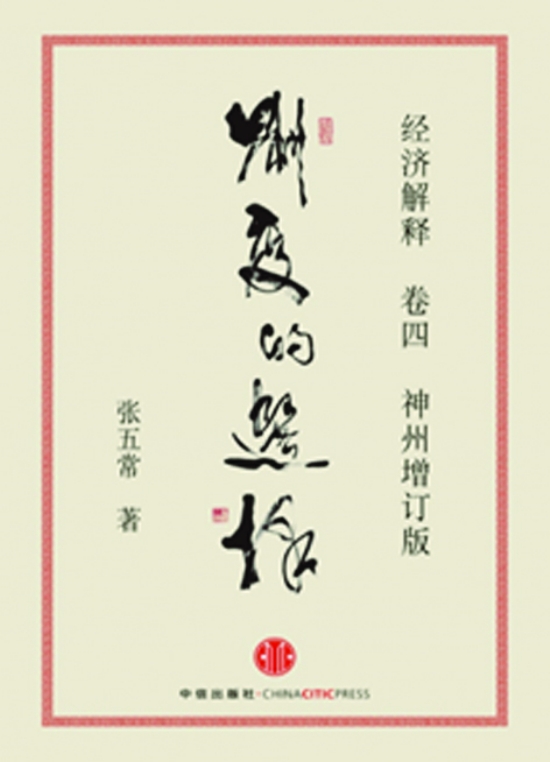 经济解释 卷四 神州增订版
制度的选择
张五常 著
中信出版社·CHINACITICPRESS